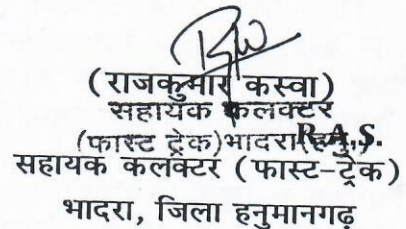 (राजकुमार कस्वा)
सहायक कलक्टर
(फास्ट ट्रेक)भादरा(हनु.)
R.A.S.
सहायक कलक्टर (फास्ट-ट्रेक)
भादरा, जिला हनुमानगढ़